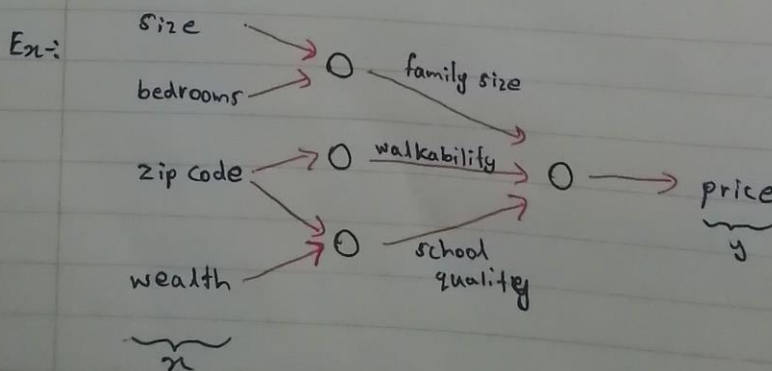 Ex-:
size
bedrooms
zip code
wealth
x
family size
walkability
school
quality
price
y